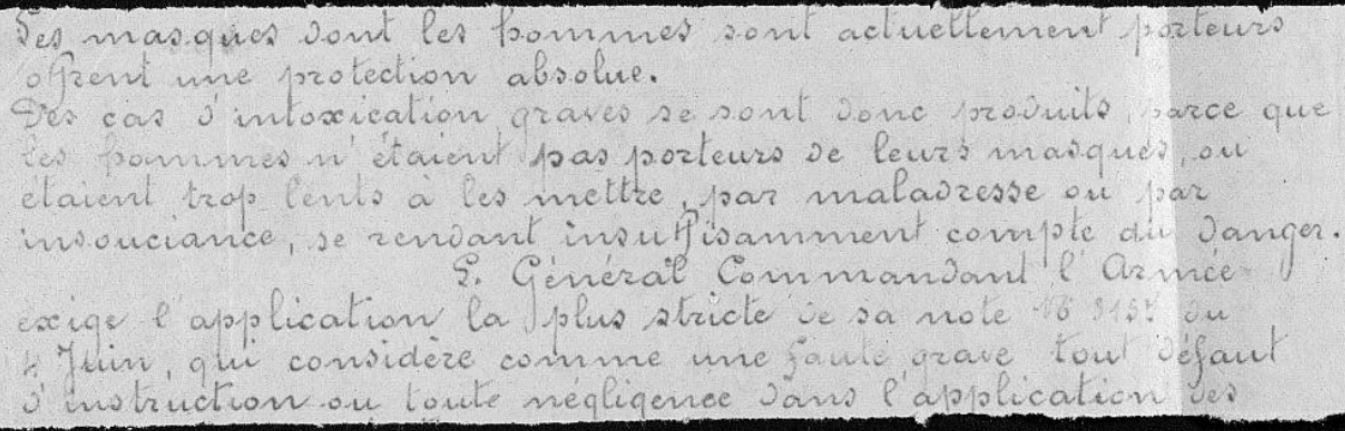 Les masques dont les hommes sont actuellement porteurs
offrent une protection absolue.
Des cas d'intoxication graves se sont donc produits, parce que
les hommes n'étaient pas porteurs de leurs masques, ou
étaient trop lents à les mettre, par maladresse ou par
insouciance, se rendant insuffisamment compte du danger.
L. Général Commandant l'Armée
exige l'application la plus stricte de sa note du
4 Juin, qui considère comme une faute grave tout défaut
d'instruction ou toute négligence dans l'application des